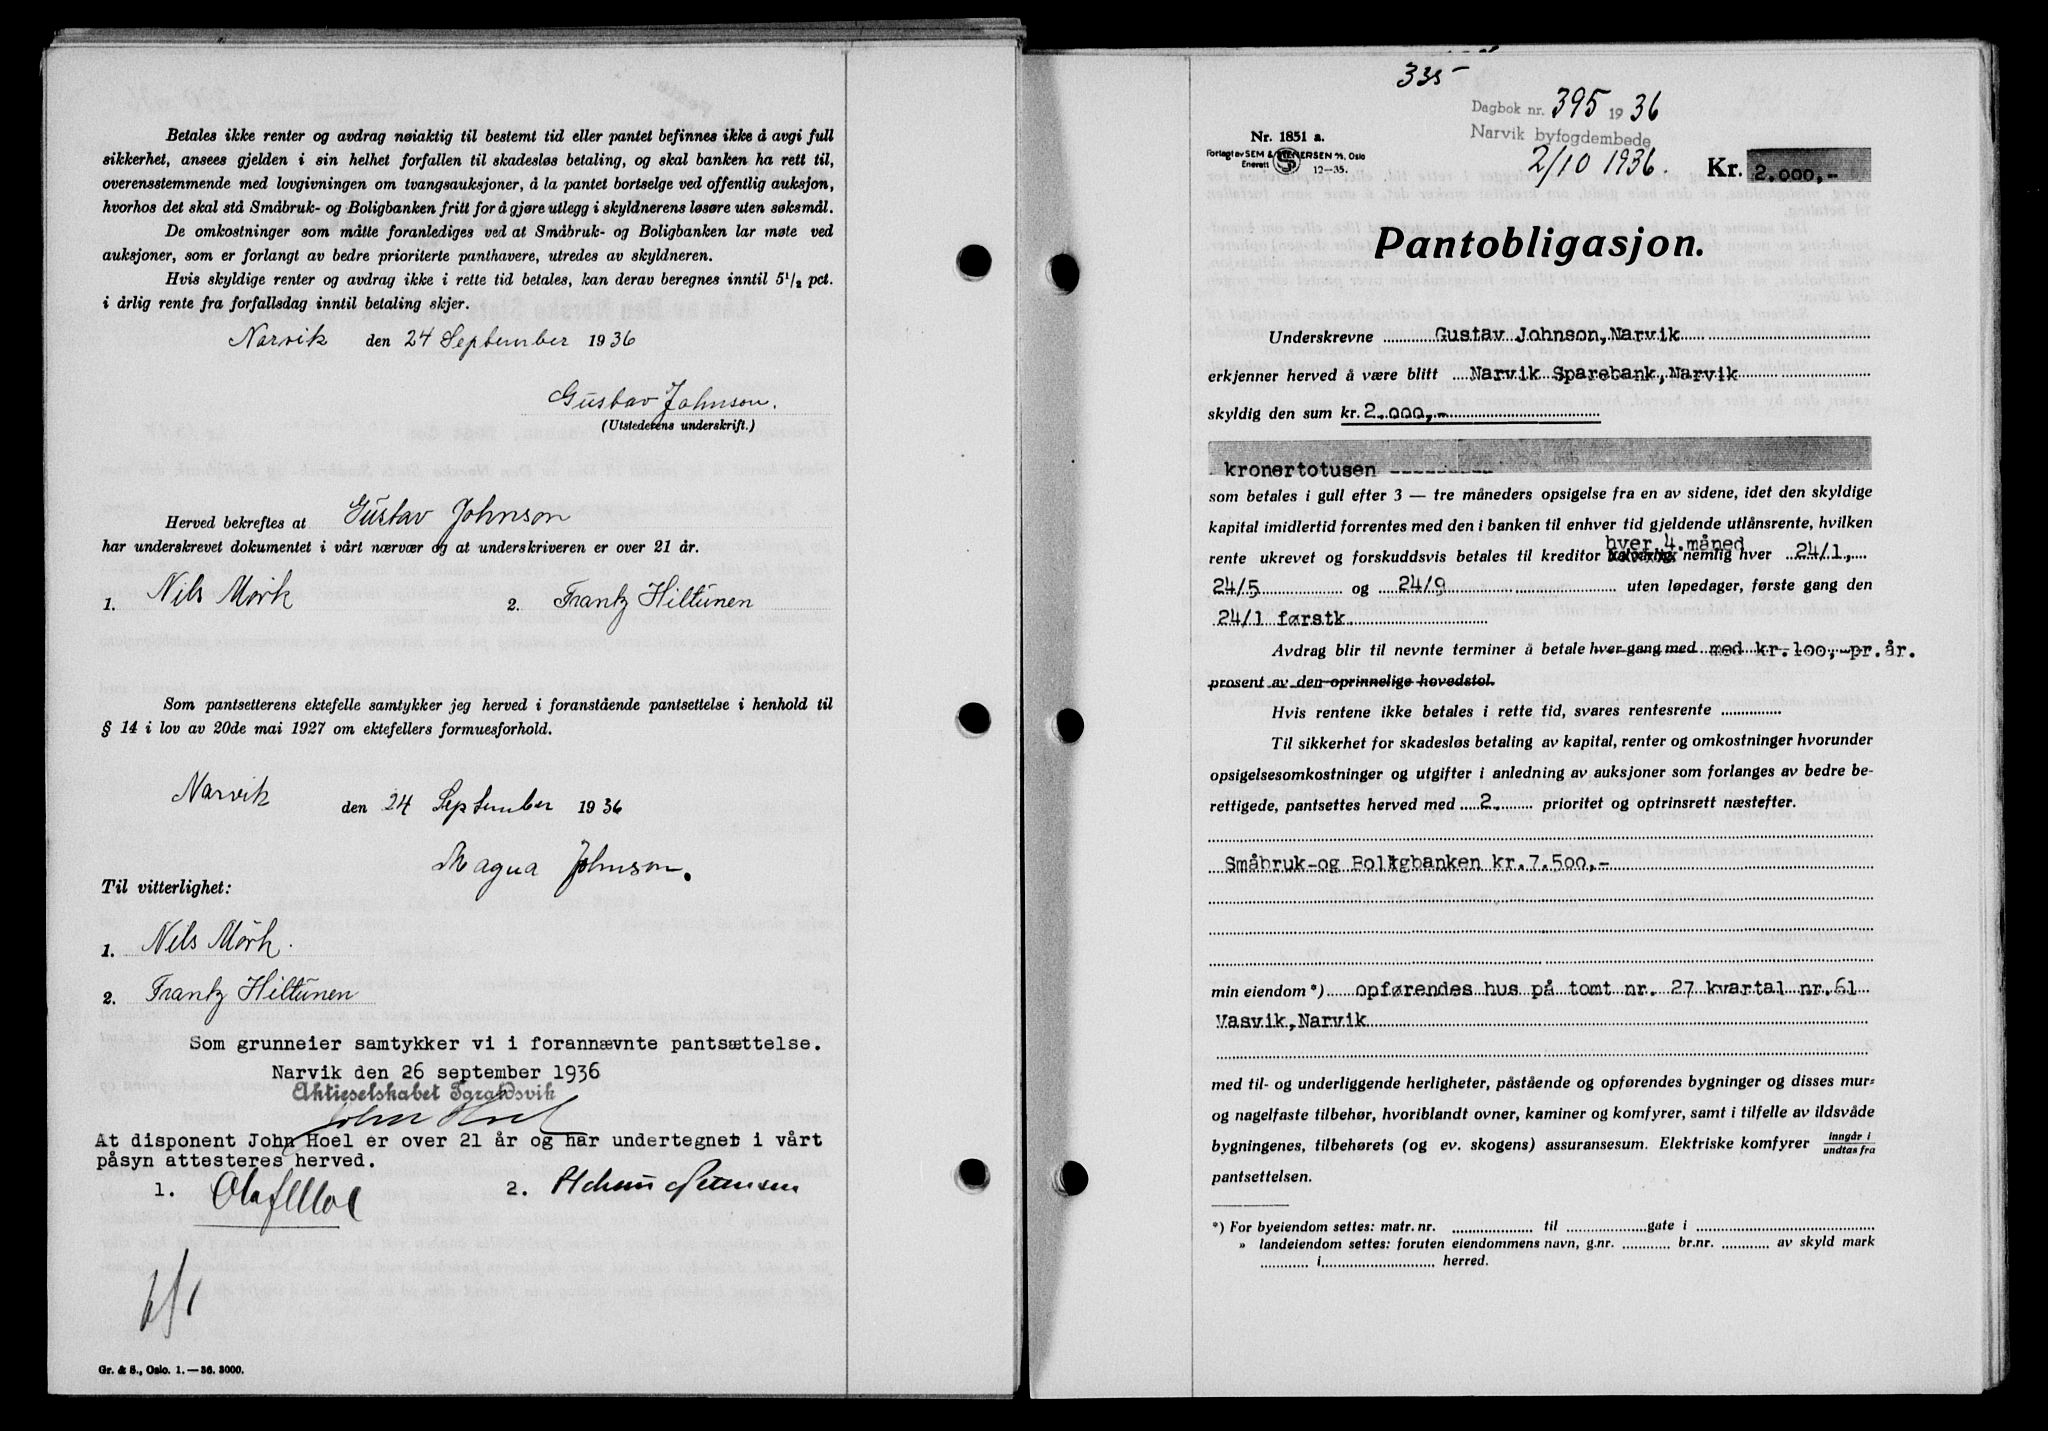 Betales ikke renter og avdrag nøiaktig til bestemt tid eller pantet befinnes ikke å avgi full
sikkerhet, ansees gjelden i sin helhet forfallen til skadesløs betaling, og skal banken ha rett til,
overensstemmende med lovgivningen om tvangsauksjoner, å la pantet bortselge ved offentlig auksjon,
hvorhos det skal stå Småbruk- og Boligbanken fritt for å gjøre utlegg i skyldnerens løsøre uten søksmål.
De omkostninger som måtte foranlediges ved at Småbruk- og Boligbanken lar møte ved
auksjoner, som er forlangt av bedre prioriterte panthavere, utredes av skyldneren.
Hvis skyldige renter og avdrag ikke i rette tid betales, kan derav beregnes inntil 5½ pct.
i årlig rente fra forfallsdag inntil betaling skjer.
Narvik den 24 September 1936
Gustav Johnson.
(Utstederens underskrift.)
Herved bekreftes at Gustav Johnson
har underskrevet dokumentet i vårt nærvær og at underskriveren er over 21 år.
1. Nils Mørk 2. Frantz Hiltunen
Som pantsetterens ektefelle samtykker jeg herved i foranstående pantsettelse i henhold til
§ 14 i lov av 20de mai 1927 om ektefellers formuesforhold.
Narvik den 24 September 1936
Magna Johnson.
Til vitterlighet:
1. Nils Mørk.
2. Frantz Hiltunen
Som grunneier samtykker vi i forannævnte pantsættelse.
Narvik den 26 september 1936
Aktieselskabet Taraldsvik
John Hoel
At disponent John Hoel er over 21 år og har undertegnet i vårt
påsyn attesteres herved.
1. Olaf Moe 2.
6/1
Gr. & S., Oslo. 1.—36. 3000.
335-
Dagbok nr. 395 1936
Narvik byfogdembede
2/10 1936.
Nr. 1851 a.
Forlagt av SEM & STENERSEN A/S, Oslo
Enerett S 12—35.
Kr. 2.000,-
Pantobligasjon.
Underskrevne Gustav Johnson, Narvik
erkjenner herved å være blitt Narvik Sparebank, Narvik
skyldig den sum kr. 2.000,-
kronertotusen
som betales i gull efter 3 — tre måneders opsigelse fra en av sidene, idet den skyldige
kapital imidlertid forrentes med den i banken til enhver tid gjeldende utlånsrente, hvilken
hver 4. måned
rente ukrevet og forskuddsvis betales til kreditor nemlig hver 24/1,
24/5 og 24/9 uten løpedager, første gang den
24/1 førstk.
Avdrag blir til nevnte terminer å betale hver gang med med kr.100,-pr.år.
prosent av den oprinnelige hovedstol.
Hvis rentene ikke betales i rette tid, svares rentesrente
Til sikkerhet for skadesløs betaling av kapital, renter og omkostninger hvorunder
opsigelsesomkostninger og utgifter i anledning av auksjoner som forlanges av bedre be-
rettigede, pantsettes herved med 2. prioritet og optrinsrett næstefter.
Småbruk-og Boligbanken kr.7.500,-
min eiendom *) opførendes hus på tomt nr. 27 kvartal nr.61
Vasvik, Narvik
med til- og underliggende herligheter, påstående og opførendes bygninger og disses mur-
og nagelfaste tilbehør, hvoriblandt ovner, kaminer og komfyrer, samt i tilfelle av ildsvåde
bygningenes, tilbehørets (og ev. skogens) assuransesum. Elektriske komfyrer inngår i
undtas fra
pantsettelsen.
*) For byeiendom settes: matr. nr. til gate i
» landeiendom settes: foruten eiendommens navn, g.nr. br.nr. av skyld mark
i herred.